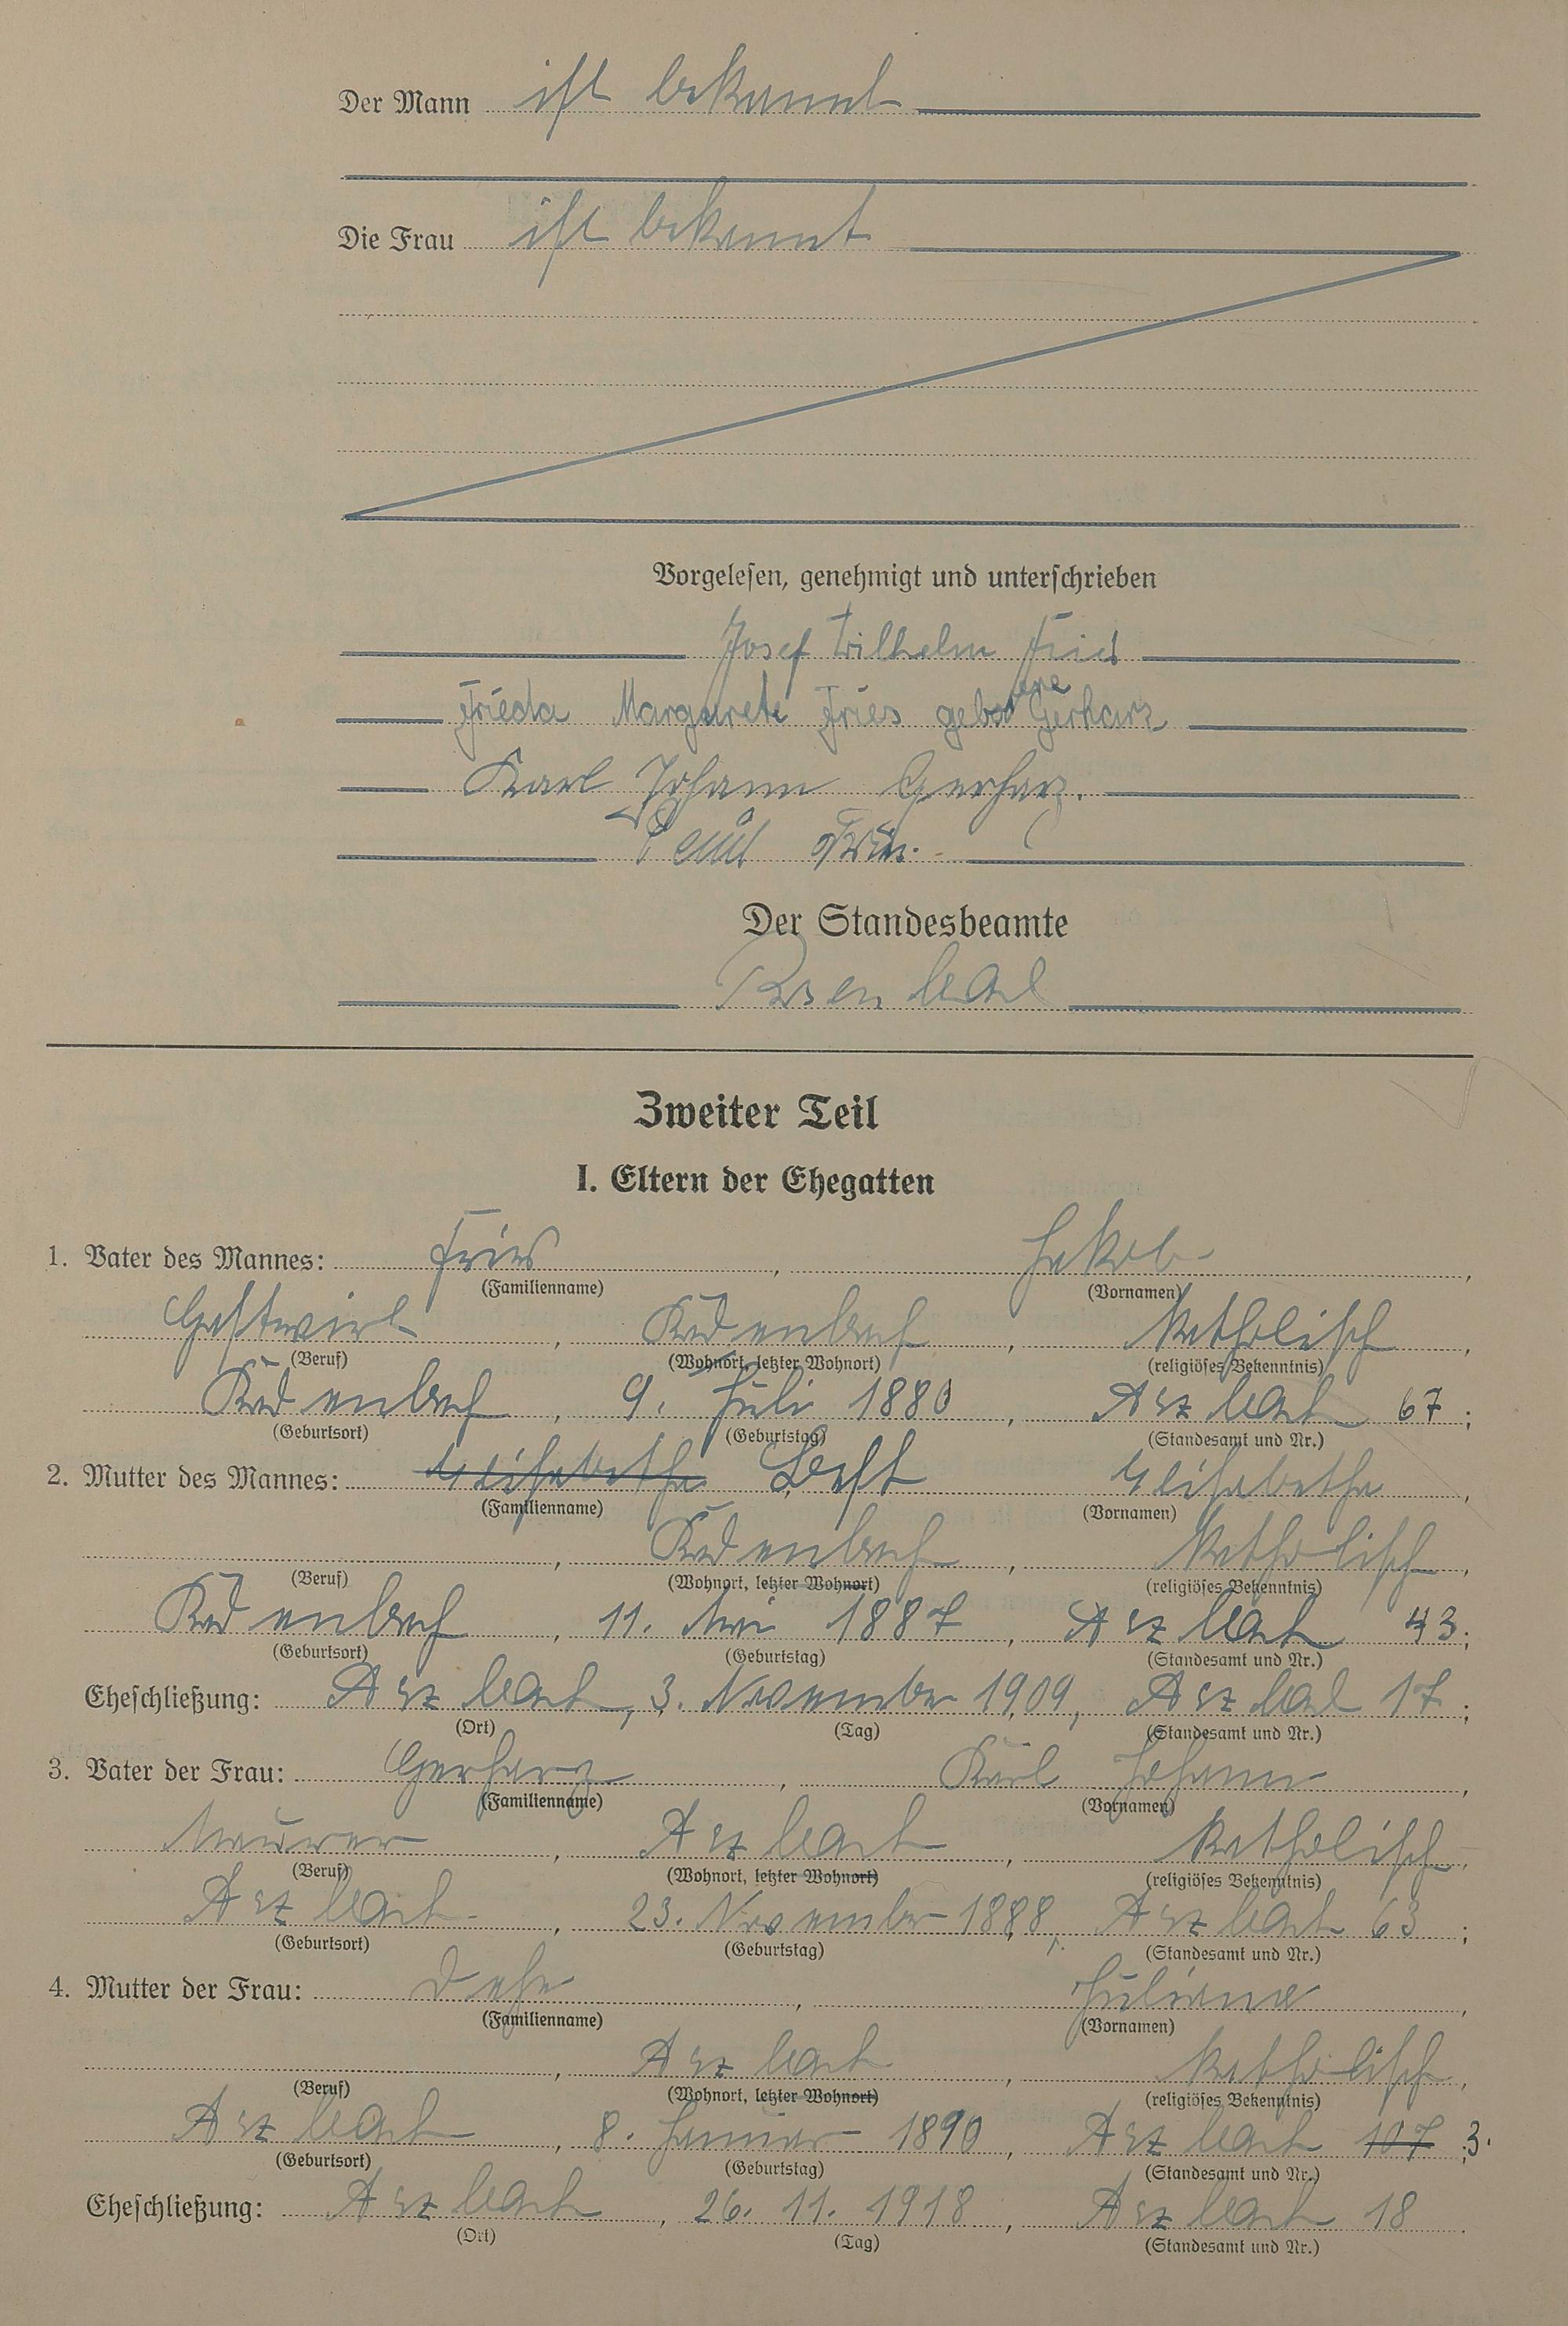 Der Mann ist bekannt
Die Frau ist bekannt
Vorgelesen, genehmigt und unterschrieben
Josef Wilhelm Fries
Frieda Margarete Fries geborene Gerharz
Karl Johann Gerharz.
Der Standesbeamte
Zweiter Teil
I. Eltern der Ehegatten
1. Vater des Mannes: Fries, Jakob,
(Familienname) (Vornamen)
Gastwirt, Kadenbach, katholisch,
(Beruf) (Wohnort, letzter Wohnort) (religiöses Bekenntnis)
Kadenbach, 9. Juli 1880, Arzbach 67;
(Geburtsort) (Geburtstag) (Standesamt und Nr.)
2. Mutter des Mannes: Elisabetha Elisabetha,
(Familienname) (Vornamen)
, Kadenbach, katholisch,
(Beruf) (Wohnort, letzter Wohnort) (religiöses Bekenntnis)
Kadenbach, 11. Mai 1887, Arzbach 43;
(Geburtsort) (Geburtstag) (Standesamt und Nr.)
Eheschließung: Arzbach, 3. November 1909, Arzbach 17;
(Ort) (Tag) (Standesamt und Nr.)
3. Vater der Frau: Gerharz, Karl Johann,
(Familienname) (Vornamen)
Maurer, Arzbach, katholisch,
(Beruf) (Wohnort, letzter Wohnort) (religiöses Bekenntnis)
Arzbach, 23. November 1888, Arzbach 63;
(Geburtsort) (Geburtstag) (Standesamt und Nr.)
4. Mutter der Frau: Dehe, Juliana,
(Familienname) (Vornamen)
, Arzbach, katholisch,
(Beruf) (Wohnort, letzter Wohnort) (religiöses Bekenntnis)
Arzbach, 8. Januar 1890, Arzbach 107 3.
(Geburtsort) (Geburtstag) (Standesamt und Nr.)
Eheschließung: Arzbach, 26. 11. 1918, Arzbach 18.
(Ort) (Tag) (Standesamt und Nr.)